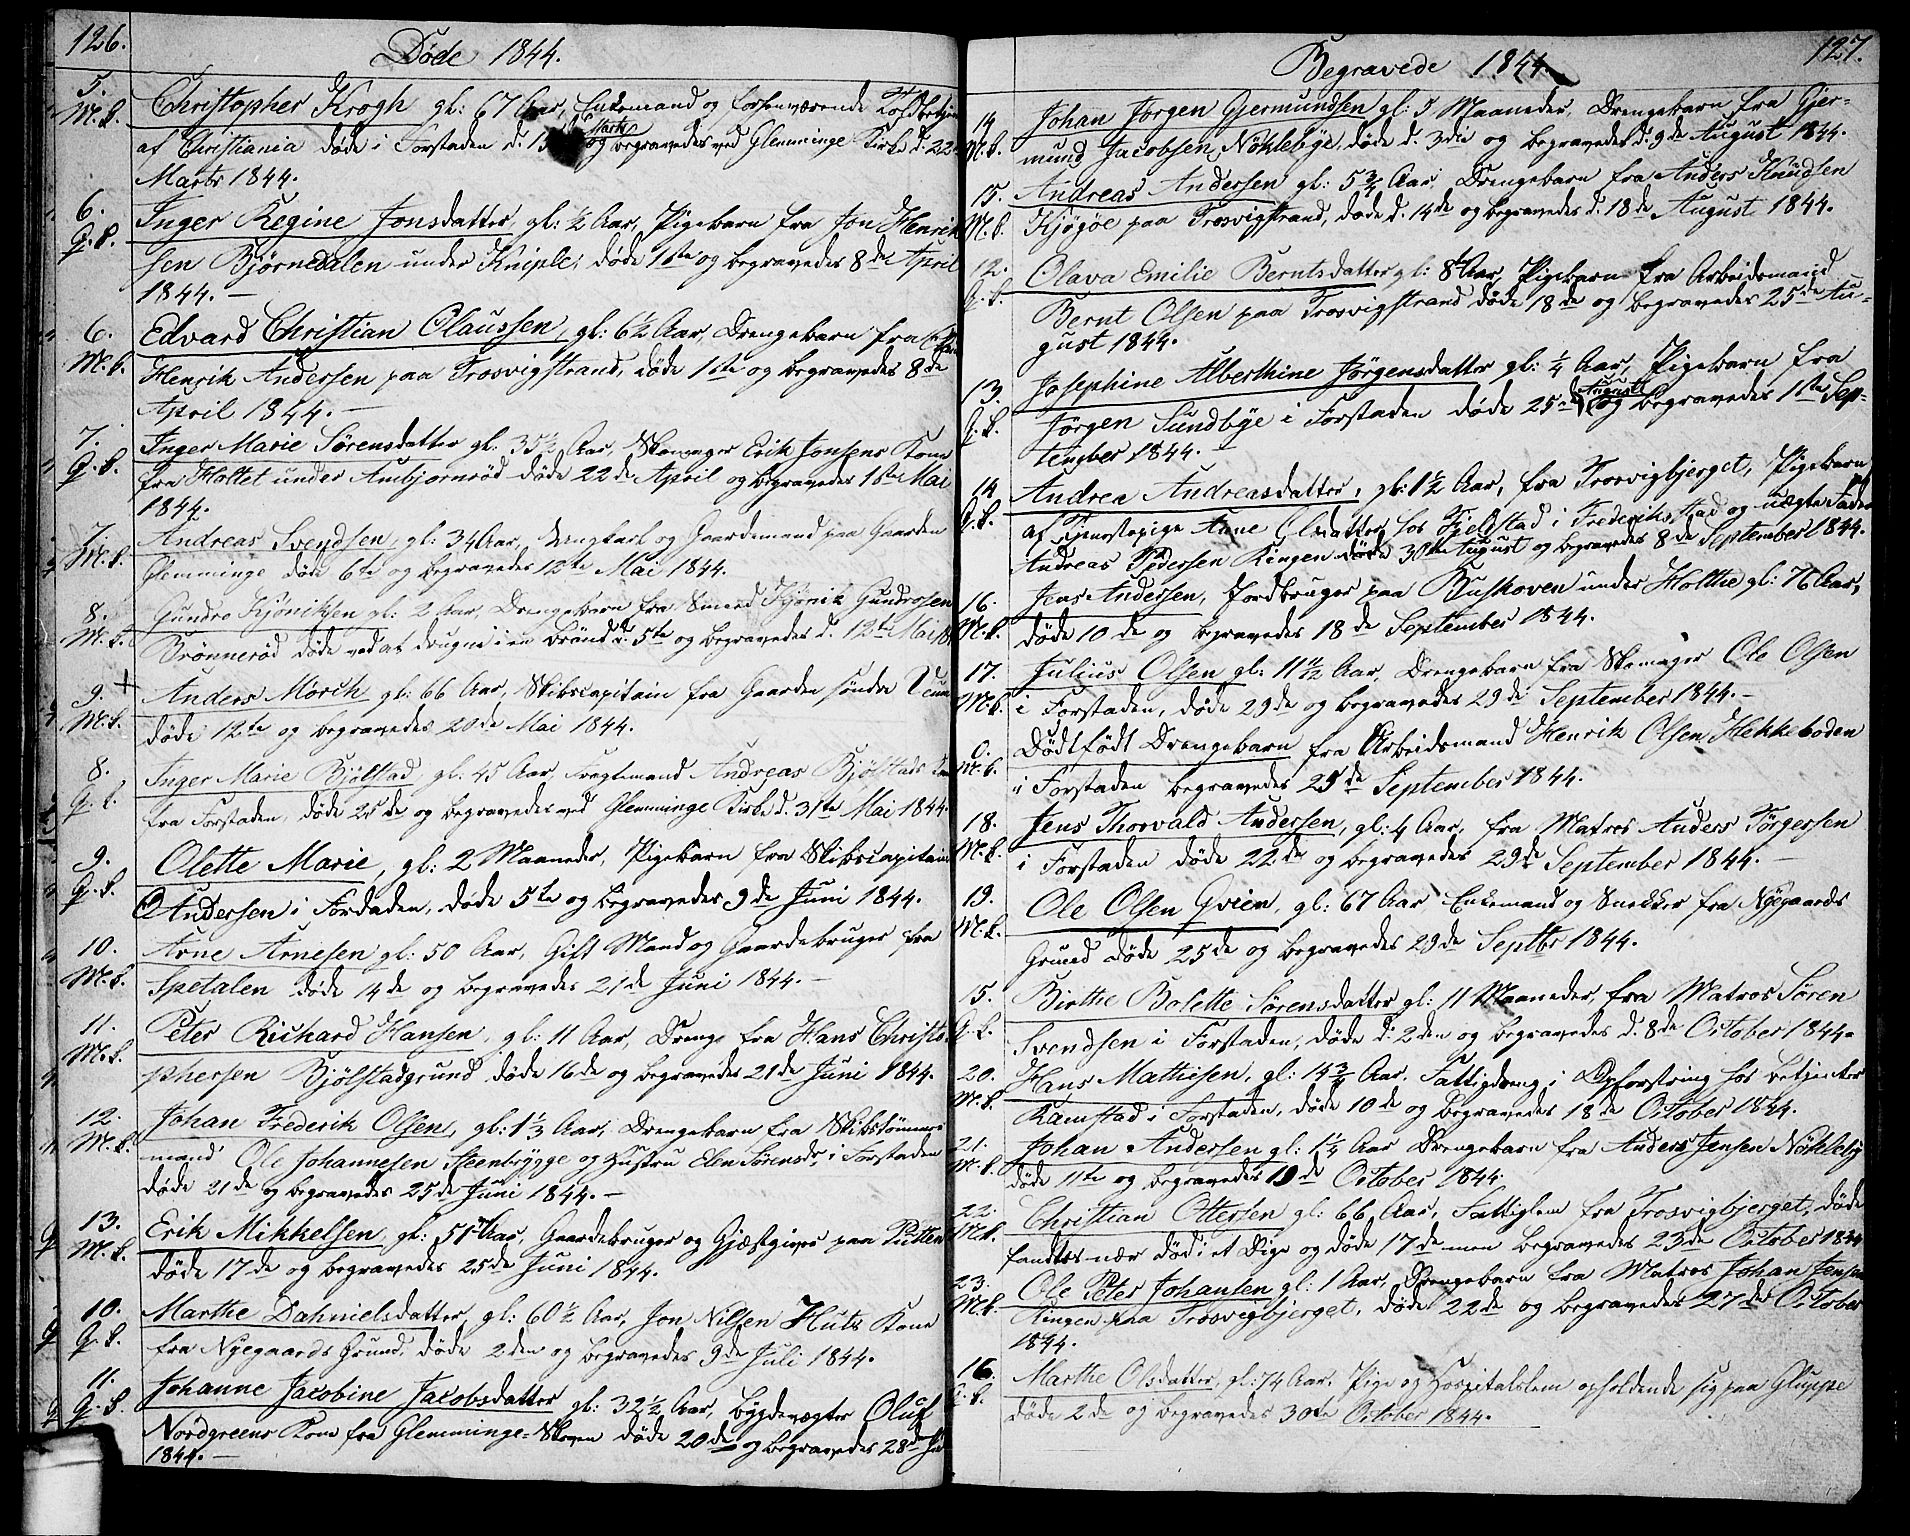 126.
Døde 1844.
5.
M.K.
Christopher Krogh gl: 67 Aar, Enkemand og forhenværende Toldbetjen
af Christiania døde i Forstaden d. 15 Marts og begravedes ved Glemminge Kirke d: 22
Marts 1844.
6.
Q.K.
Inger Regine Jonsdatter, gl: ½ Aar, Pigebarn fra Jon Henrik
sen Bjørnedalen under Kniple, døde 1ste og begravedes 8de April
1844. —
6.
M.K.
Edvard Christian Claussen, gl: 6½ Aar, Drengebarn fra
Henrik Andersen paa Trosvigstrand, døde 1ste og begravedes 8de
April 1844. —
7.
Q.K.
Inger Marie Sørensdatter gl: 35½ Aar, Skomager Erik Jonsens Kone
fra Holtet under Ambjørnrød døde 22de April og begravedes 1ste Mai
1844.
7.
M.K.
Andreas Svendsen, gl: 34 Aar, Ungkarl og Gaardemand paa Gaarden
Glemminge døde 6te og begravedes 12te Mai 1844.
8.
M.K.
Gundro Kjøniksen gl: 2 Aar, Drengebarn fra Smeed Kjønik Gundrosen
Brønnerød døde ved at drugne i en Brønd d. 5te og begravedes d. 12te Mai
9. +
M.K.
Anders Mörch gl: 66 Aar, Skibscapitain fra Gaarden søndre
døde 12te og begravedes 20de Mai 1844.
8.
Q.K.
Inger Marie Bjölstad, gl: 45 Aar, Fragtemand Andreas Bjölstads
fra Forstaden, døde 25de og begravedes ved Glemminge Kirke d. 31te Mai 1844.
9.
Q.K.
Olette Marie, gl: 2 Maaneder, Pigebarn fra Skibscapitain
O Andersen i Fordaden, døde 5te og begravedes 9de Juni 1844.
10.
M.K.
Arne Arnesen gl: 50 Aar, Gift Mand og Gaardebruger fra
Spetalen døde 14de og begravedes 21de Juni 1844. —
11.
M.K.
Peter Richard Hansen, gl: 11 Aar, Dreng fra Hans Christo
phersen Bjölstadgrund døde 16de og begravedes 21de Juni 1844.
12.
M.K.
Johan Frederik Olsen, gl: 1⅓ Aar, Drengebarn fra Skibstømmer
mand Ole Johannesen Steenbrygge og Hustru Elen Sørensdr. i Forstaden
døde 21de og begravedes 25de Juni 1844. —
13.
M.K.
Erik Mikkelsen, gl: 51 Aar, Gaardebruger og Gjæstgiver paa Putten
døde 17de og begravedes 25de Juni 1844.
10.
Q.K.
Marthe Dahnielsdatter, gl: 60½ Aar, Jon Nilsen Huts Kone
fra Nyegaards Grund, døde 2den og begravedes 9de Juli 1844.
11.
Q.K.
Johanne Jacobine Jacobsdatter gl: 32½ Aar, bygdevægter Oluf
Nordgreens Kone fra Glemminge=Skoven døde 20de og begravedes 28de
1844. —
Begravede 1844.
127.
14
M.K.
Johan Jørgen Gjermundsen gl: 5 Maaneder, Drengebarn fra Gjer-
mund Jacobsen Nöklebye, døde d. 3die og begravedes d. 9de August 1844.
15.
M.K.
Andreas Andersen gl: 5¾ Aar, Drengebarn fra Anders Knudsen
Kjøgøe paa Trosvigstrand, døde d. 14de og begravedes d. 18de August 1844.
12.
Q.K.
Olava Emilie Berntsdatter, gl: 8 Aar, Pigebarn fra Arbeidsmand
Bernt Olsen paa Trosvigstrand døde 18de og begravedes 25de Au-
gust 1844.
13.
Q.K.
Josephine Alberthine Jørgensdatter gl: ¼ Aar, Pigebarn fra
Jørgen Sundbye i Forstaden døde 25de August og begravedes 1ste Sep-
tember 1844. —
14
Q.K.
Andrea Andreasdatter, gl: 1½ Aar, fra Trosvigbjerget, Pigebarn
af Tjenstepige Anne Olsdatter hos Fjeldstad i Frederikstad og uægte Fader
Andreas Pedersen Ringen døde 30te August og begravedes 8de September 1844.
16.
M.K.
Jens Andersen, Jordbruger paa Buskoven under Holthe gl: 76 Aar,
døde 10de og begravedes 18de September 1844.
17.
M.K.
Julius Olsen gl: 11/12 Aar, Drengebarn fra Skomager Ole Olsen
i Forstaden, døde 29de og begravedes 29de September 1844. —
0.
M.K.
Dødfødt Drengebarn fra Arbeidsmand Henrik Olsen Hekkeboden
i Forstaden begravedes 25de September 1844.
18.
M.K.
Jens Thorvald Andersen, gl: 4 Aar, fra Matros Anders Törgersen
i Forstaden døde 22de og begravedes 29de September 1844. —
19.
M.K.
Ole Olsen Gvien, gl: 67 Aar Enkemand og Snekker fra Nÿgaards
Grund døde 25de og begravedes 29de Septbr 1844.
15.
Q.K.
Birthe Bolette Sørensdatter gl: 11 Maaneder, fra Matros Søren
Svendsen i Forstaden, døde d: 2den og begravedes d. 8de October 1844.
20.
M.K.
Hans Mathisen, gl: 14¾ Aar. Fattigdreng i Opfostring hos betjenter
Ramstad i Forstaden, døde 10de og begravedes 18de October 1844.
21.
M.K.
Johan Andersen gl: 1¼ Aar Drengebarn fra Anders Jensen Nökleby
døde 11te og begravedes 19de October 1844.
22.
M.K.
Christian Ottersen gl: 66 Aar, Fattiglem fra Trosvigbjerget, døde
fandtes nær død i et Dige og døde 17de men begravedes 23de October 1844
23.
M.K.
Ole Peter Johansen gl: 1 Aar, Drengebarn fra Matros Johan Jensen
Ringen paa Trosvigbjerget, døde 22de og begravedes 27de October
1844.
16.
Q.K.
Marthe Olsdatter, gl: 74 Aar. Pige og Hospitalslem opholdende sig paa Gluppe
døde 2de og begravedes 30te October 1844.